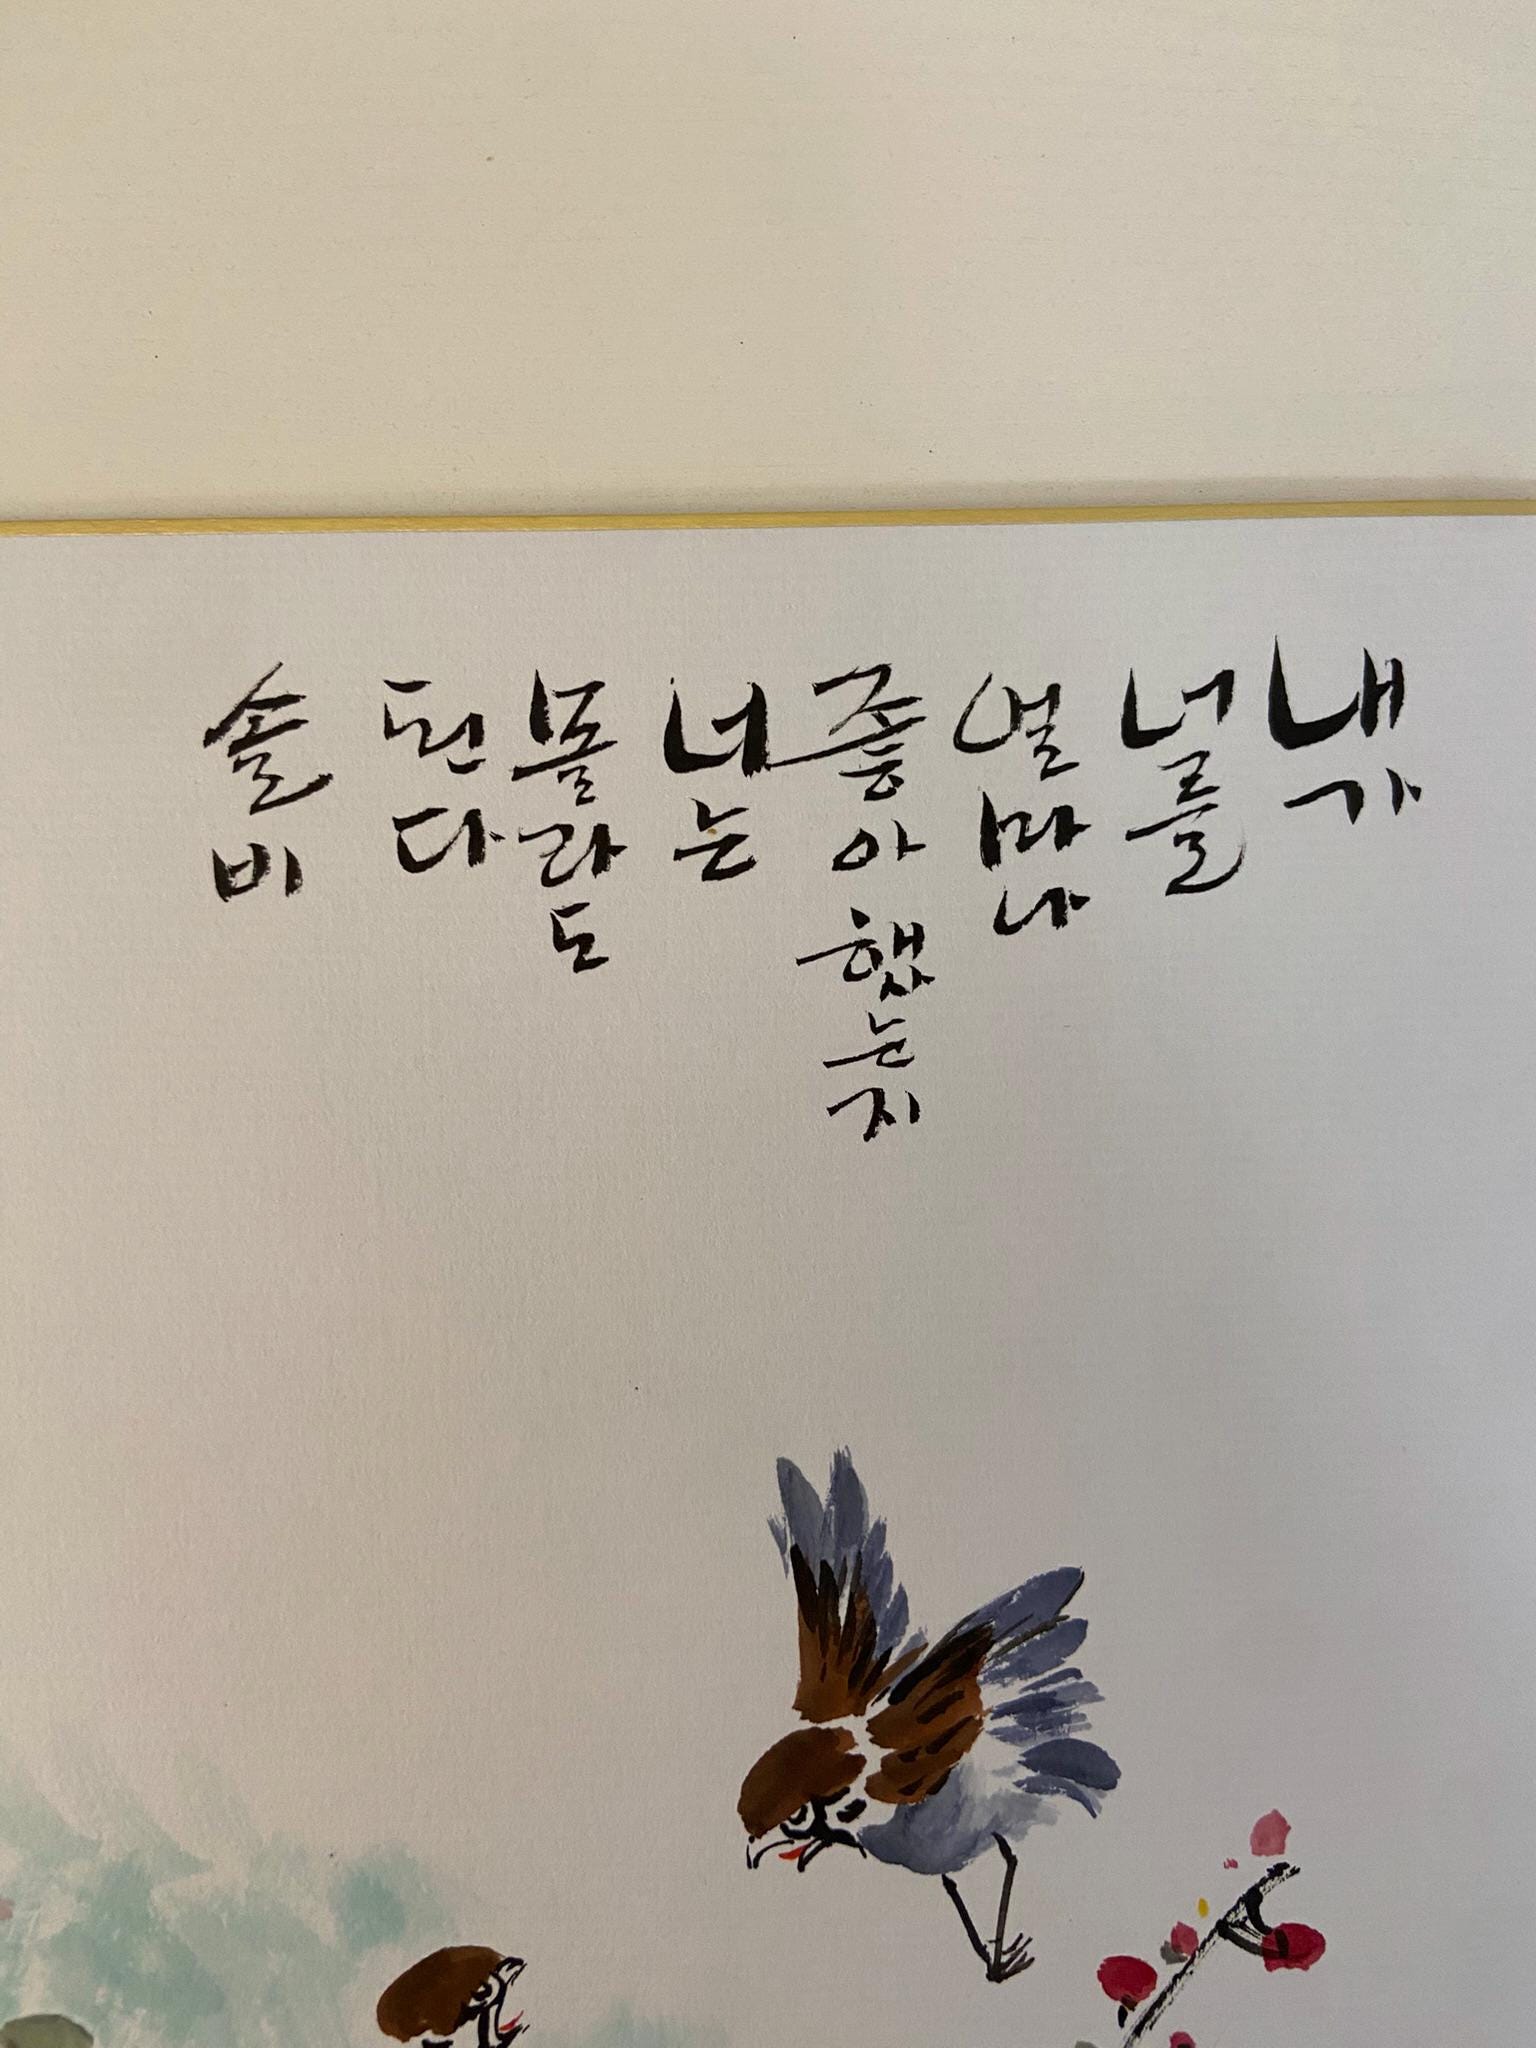 내가
너를
얼마나
좋아했는지
너는
몰라도
된다
솔비